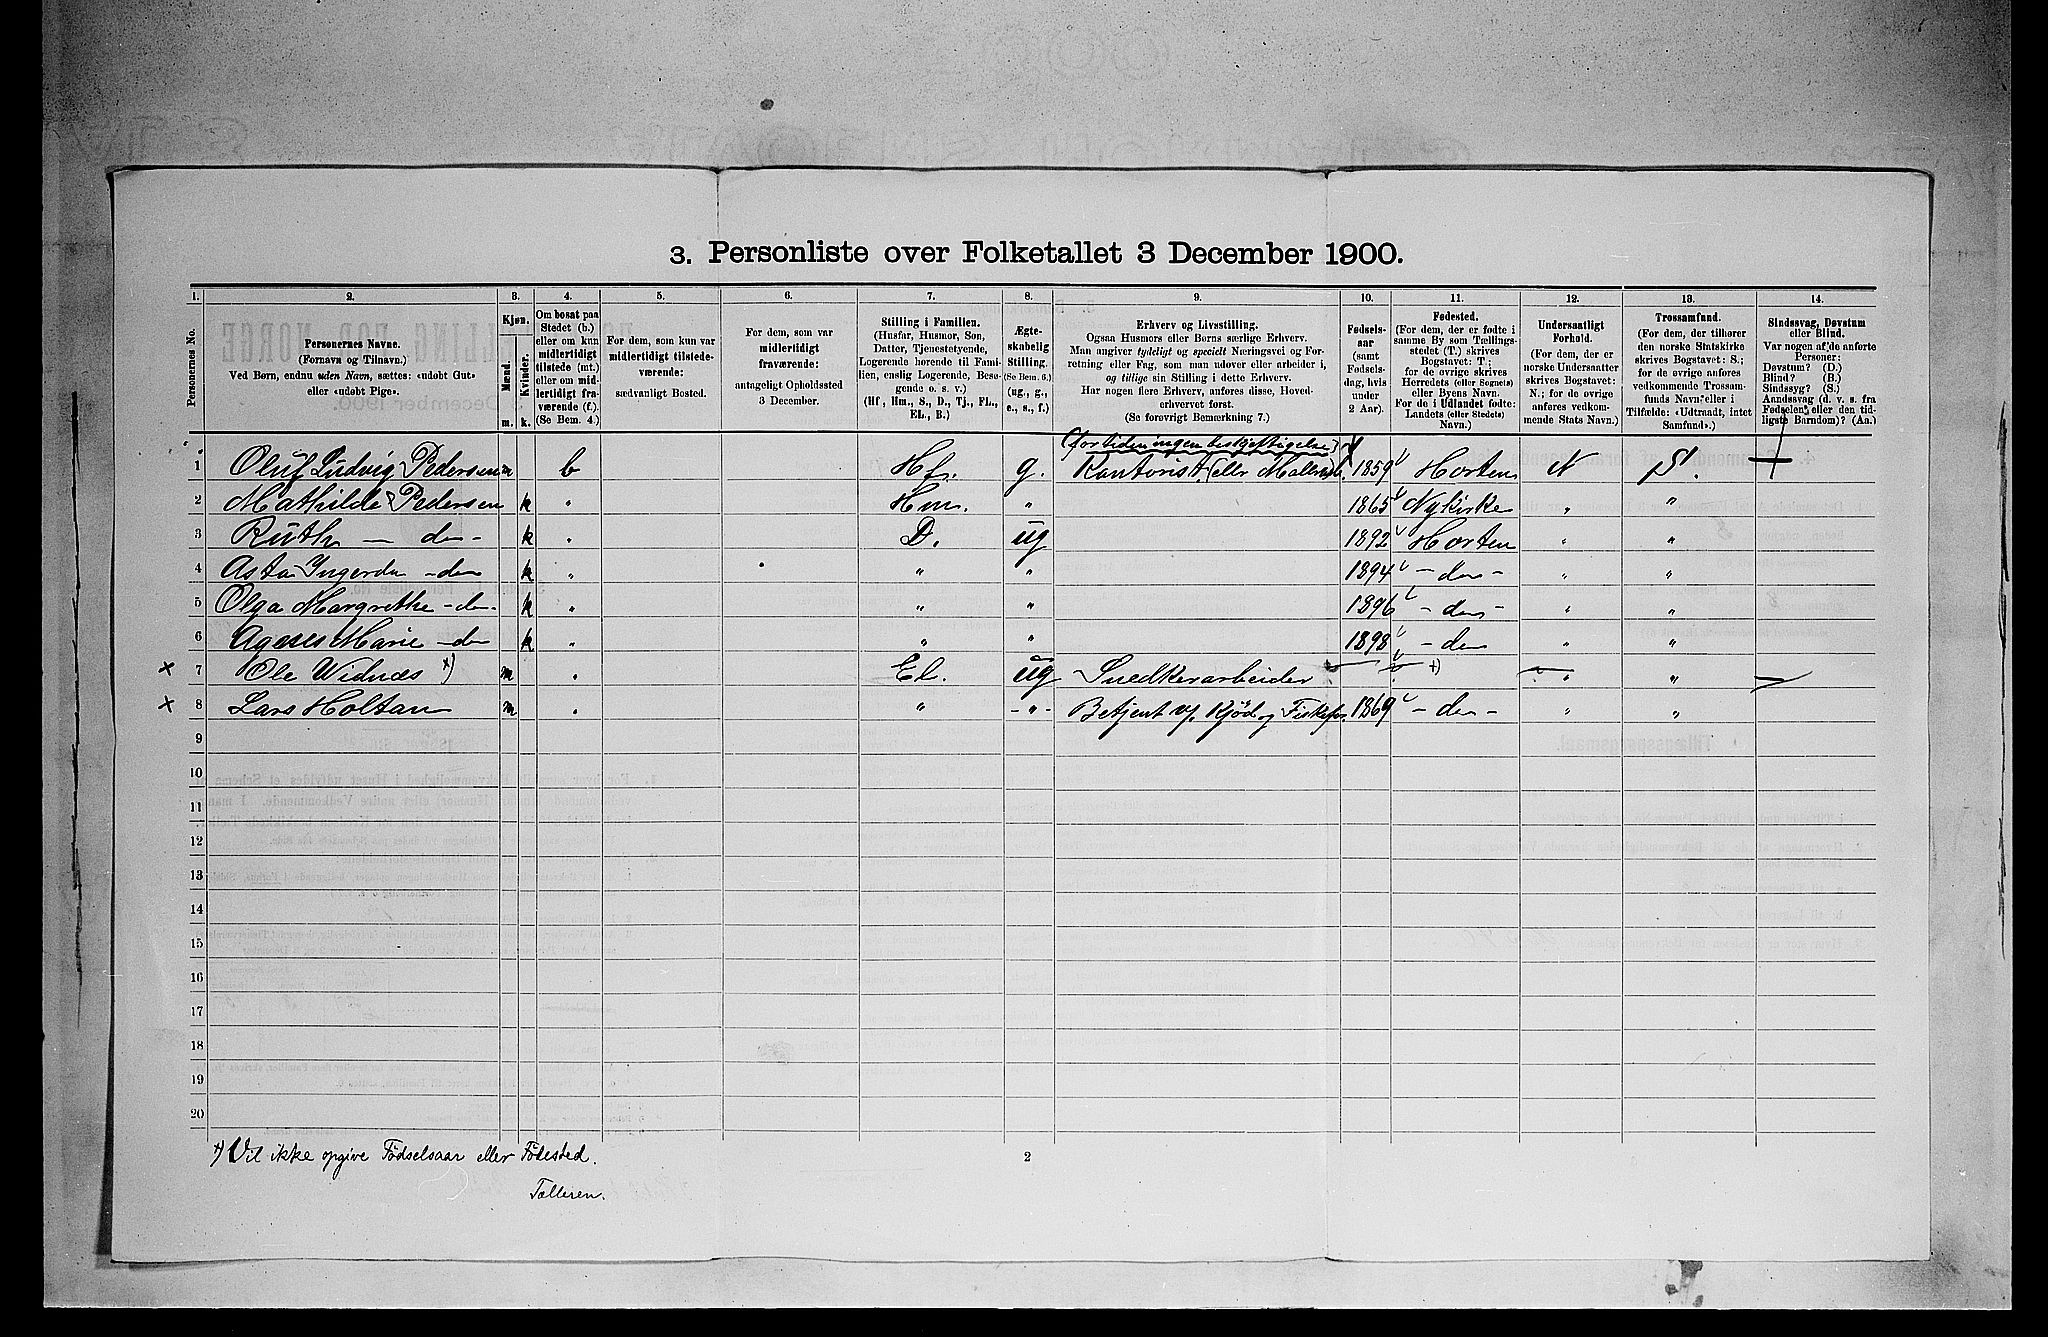 3. Personliste over Folketallet 3 December 1900.
1. 2. 3. 4. 5. 6. 7. 8. 9. 10. 11. 12. 13. 14.
Personernes No.
Personernes Navne.
(Fornavn og Tilnavn.)
Ved Børn, endnu uden Navn, sættes: «udøbt Gut»
eller «udøbt Pige».
Kjøn.
Mænd. Kvinder.
m. k.
Om bosat paa
Stedet (b.)
eller om kun
midlertidigt
tilstede (mt.)
eller om mid-
lertidigt fra-
værende (f.).
(Se Bem. 4.)
For dem, som kun var
midlertidigt tilstede-
værende:
sædvanligt Bosted.
For dem, som var
midlertidigt
fraværende:
antageligt Opholdssted
3 December.
Stilling i Familien.
(Husfar, Husmor, Søn,
Datter, Tjenestetyende,
Logerende hørende til Fami-
lien, enslig Logerende, Besø-
gende o. s. v.)
(Hf., Hm., S., D., Tj., FL.,
EL., B.)
Ægte-
skabelig
Stilling.
(Se Bem. 6.)
(ug., g.,
e., s., f.)
Erhverv og Livsstilling.
Ogsaa Husmors eller Børns særlige Erhverv.
Man angiver tydeligt og specielt Næringsvei og For-
retning eller Fag, som man udøver eller arbeider i,
og tillige sin Stilling i dette Erhverv.
Har nogen flere Erhverv, anføres disse, Hoved-
erhvervet først.
(Se forøvrigt Bemerkning 7.)
Fødsels-
aar
(samt
Fødsels-
dag, hvis
under
2 Aar).
Fødested.
(For dem, der er fødte i
samme By som Tællings-
stedet (T.) skrives
Bogstavet: T;
for de øvrige skrives
Herredets (eller Sognets)
eller Byens Navn.
For de i Udlandet fødte:
Landets (eller Stedets)
Navn.)
Undersaatligt
Forhold.
(For dem, der er
norske Undersaatter
skrives Bogstavet:
N.; for de øvrige
anføres vedkom-
mende Stats Navn.)
Trossamfund.
(For dem, der tilhører
den norske Statskirke
skrives Bogstavet: S.;
for de øvrige anføres
vedkommende Trossam-
funds Navn. eller i
Tilfælde: «Udtraadt, intet
Samfund».)
Sindssvag, Døvstum
eller Blind.
Var nogen af de anførte
Personer:
Døvstum? (D.)
Blind? (B.)
Sindssyg? (S.)
Aandssvag (d. v. s. fra
Fødselen eller den tid-
ligste Barndom)? (Aa.)
(for tiden ingen beskjæftigelse)
1 Oluf Ludvig Pedersen m b Hf. g. Kontorist (eller 1859 Horten N S.
2 Mathilde Pedersen k " Hm. " 1865 Nykirke " "
3 Ruth — do - k " D. ug 1892 Horten " "
4 Asta Ingerda - do k " " " 1894 - do - " "
5 Olga Margrethe - do - k " " " 1896 - do - " "
6 Ageses Marie - do k " " " 1898 - do " "
x 7 Ole Widnæs x) m " El. ug Snedkerarbeider — — x) " "
x 8 Lars Holtan m " " - " - Betjent v/ Kjød og 1869 - do - " "
9
10
11
12
13
14
15
16
17
18
19
20
x) Vil ikke opgive Fødselsaar eller Fødested.
Tælleren.
2